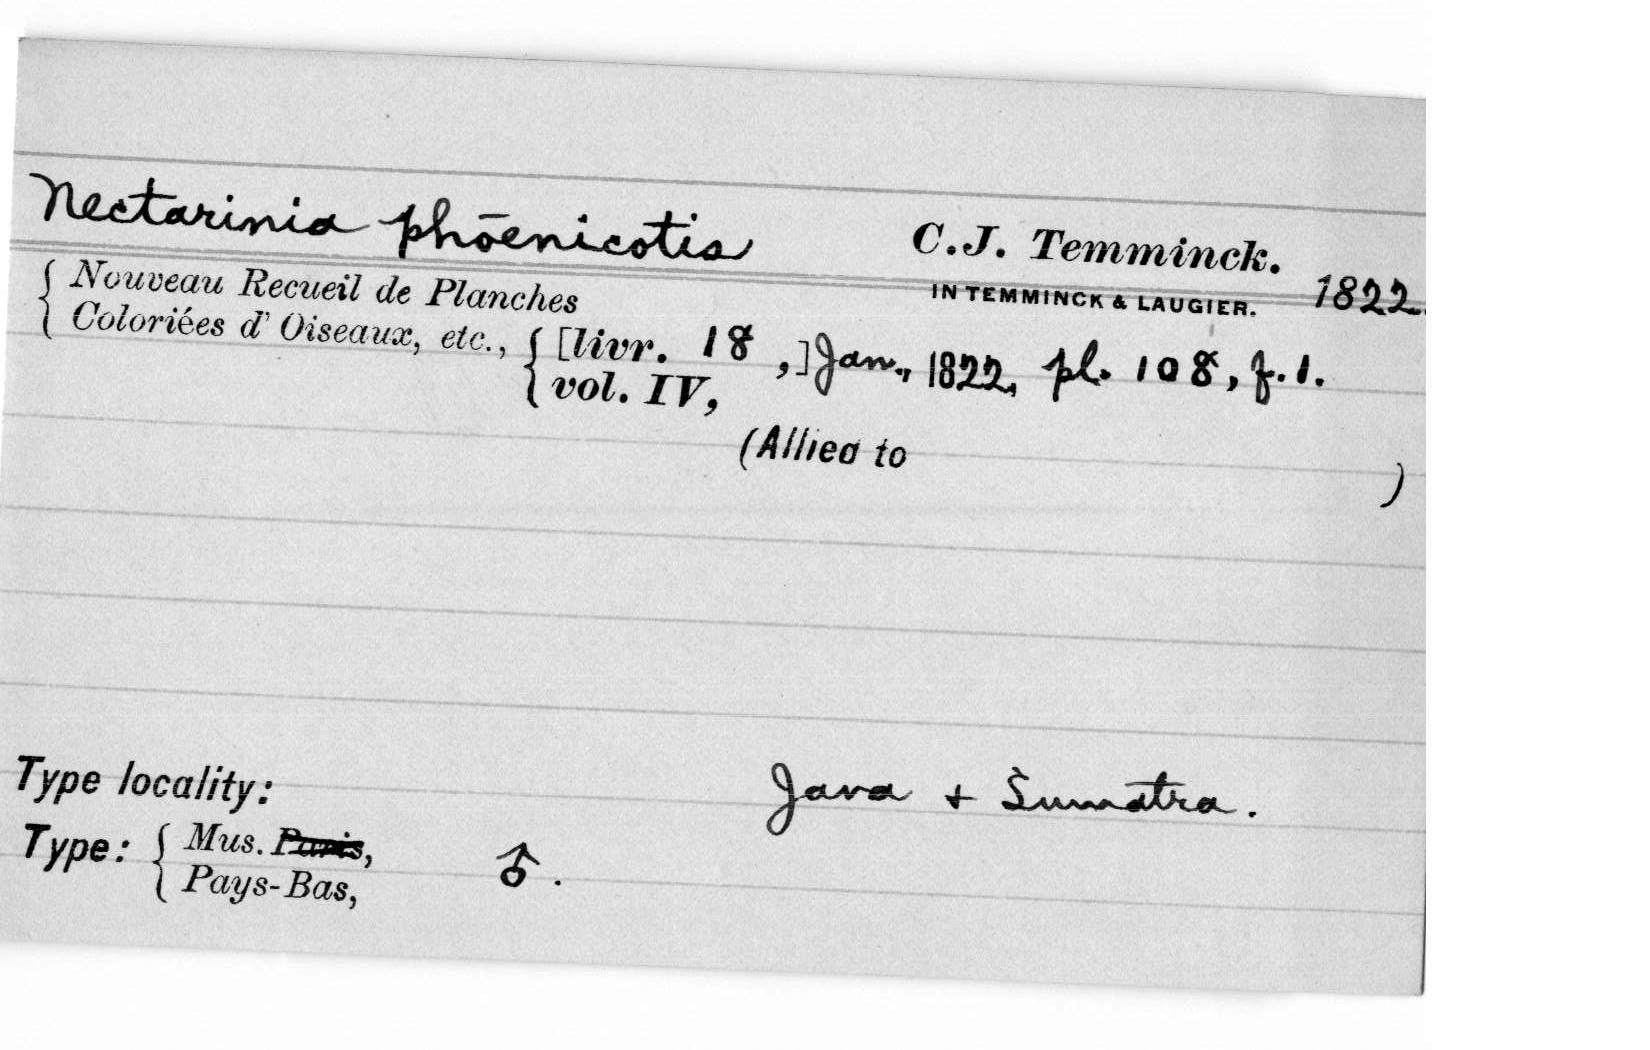 Nectarinia phōenicotis C.J. Temminck.
IN TEMMINCK & LAUGIER. 1822.
{ Nouveau Recueil de Planches
Coloriées d' Oiseaux, etc., { [livr. 18 ,] Jan., 1822, pl. 108, f. 1.
vol. IV,
(Allied to )
Type locality: Java + Sumatra.
Type: { Mus. Paris, ♂.
Pays-Bas,